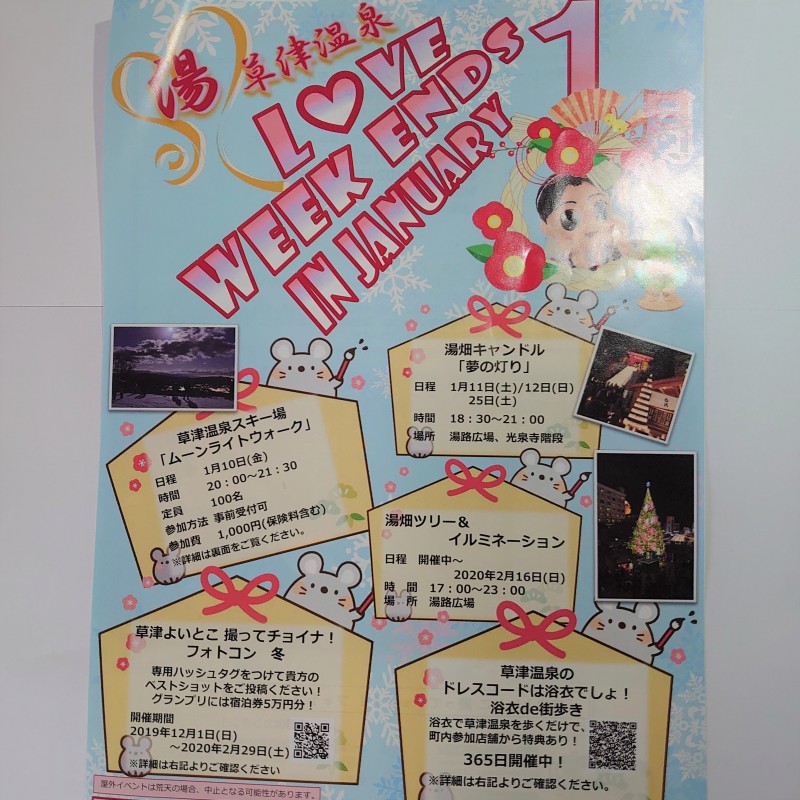 湯
草津温泉
LOVE
WEEK ENDS
IN JANUARY
1月
草津温泉スキー場
「ムーンライトウォーク」
日程 1月10日(金)
時間 20：00～21：30
定員 100名
参加方法 事前受付可
参加費 1,000円(保険料含む)
※詳細は裏面をご覧ください。
湯畑キャンドル
「夢の灯り」
日程 1月11日(土)/12日(日)
25日(土)
時間 18：30～21：00
場所 湯路広場、光泉寺階段
湯畑ツリー＆
イルミネーション
日程 開催中～
2020年2月16日(日)
時間 17：00～23：00
場所 湯路広場
草津よいとこ 撮ってチョイナ！
フォトコン 冬
専用ハッシュタグをつけて貴方の
ベストショットをご投稿ください！
グランプリには宿泊券5万円分！
開催期間
2019年12月1日(日)
～2020年2月29日(土)
※詳細は右記よりご確認ください
草津温泉の
ドレスコードは浴衣でしょ！
浴衣de街歩き
浴衣で草津温泉を歩くだけで、
町内参加店舗から特典あり！
365日開催中！
※詳細は右記よりご確認ください。
屋外イベントは荒天の場合、中止となる可能性があります。